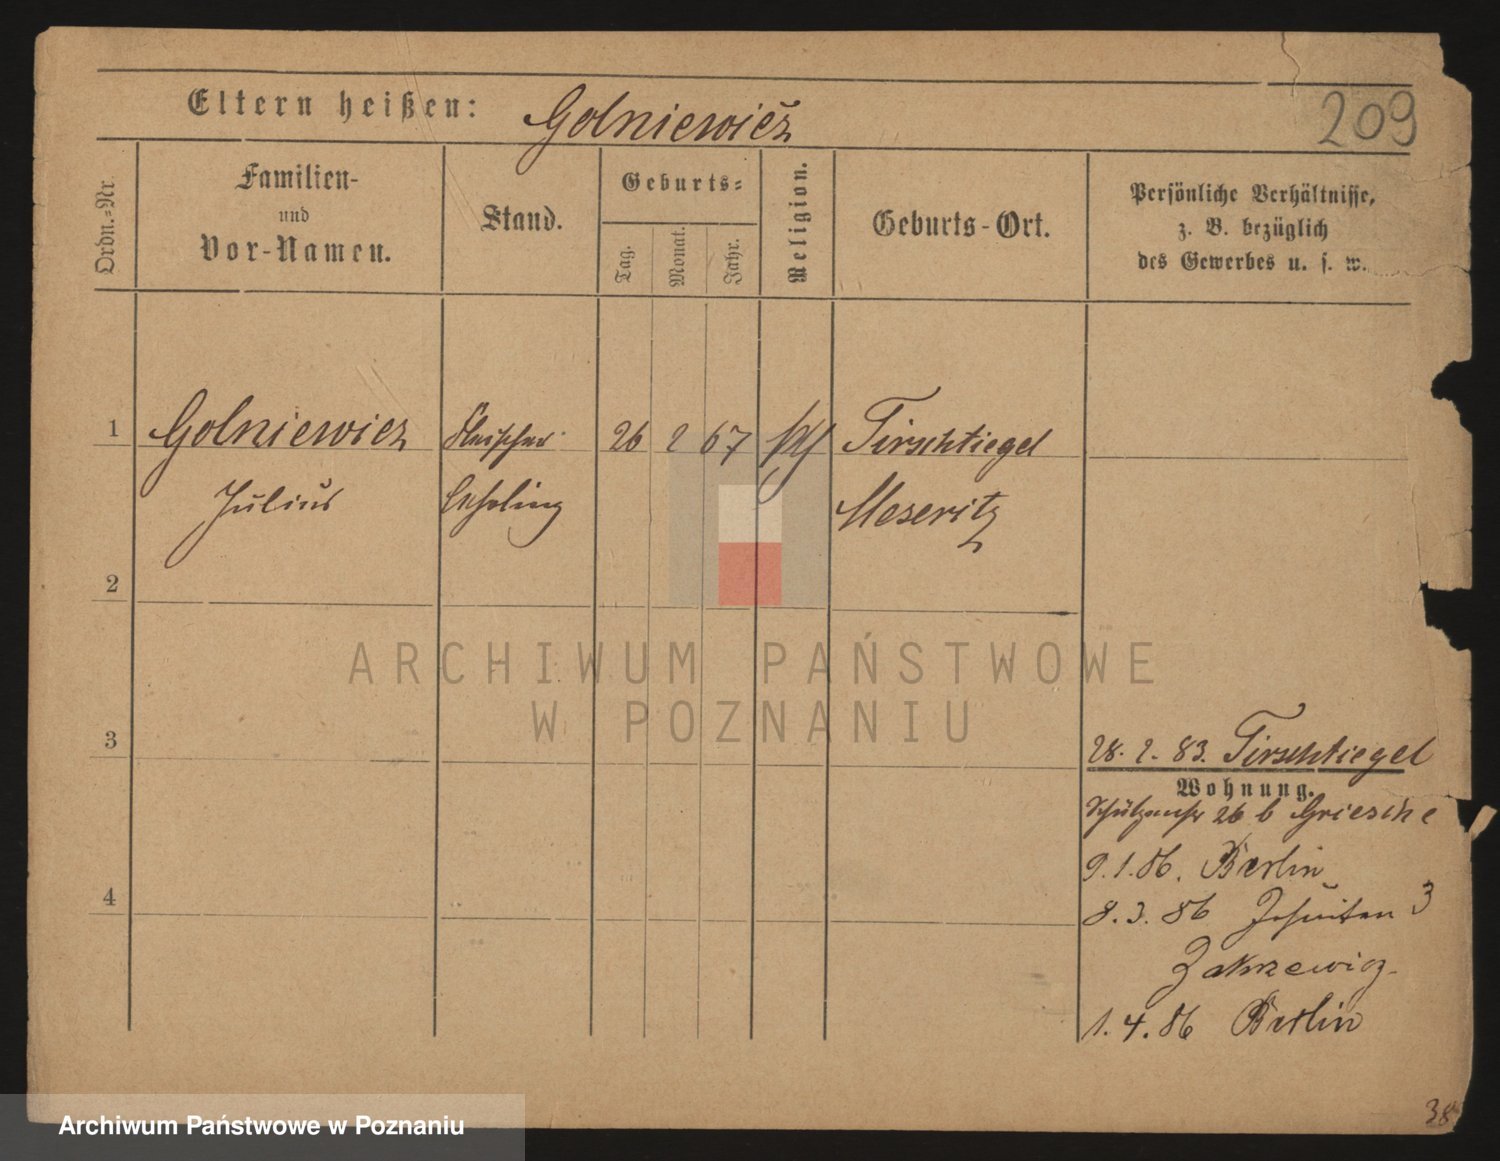 Eltern heißen: Golniewicz
209
Ordn.=Nr.
Familien-
und
Vor-Namen.
Stand.
Geburts=
Tag.
Monat.
Jahr.
Religion.
Geburts-Ort.
Persönliche Verhältnisse,
z. B. bezüglich
des Gewerbes u. s. w.
1 Golniewicz Fleischer 26 2 67 Tirschtiegel
Julius Lehrling Meseritz
2
ARCHIWUM PAŃSTWOWE
W POZNANIU
3
28. 2. 83. Tirschtiegel
Wohnung.
Schützenstr 26 b Griesche
9. 1. 86. Berlin
4
8. 3. 86 Jesuiten 3
Zakrzewicz
1. 4. 86 Berlin
38
Archiwum Państwowe w Poznaniu